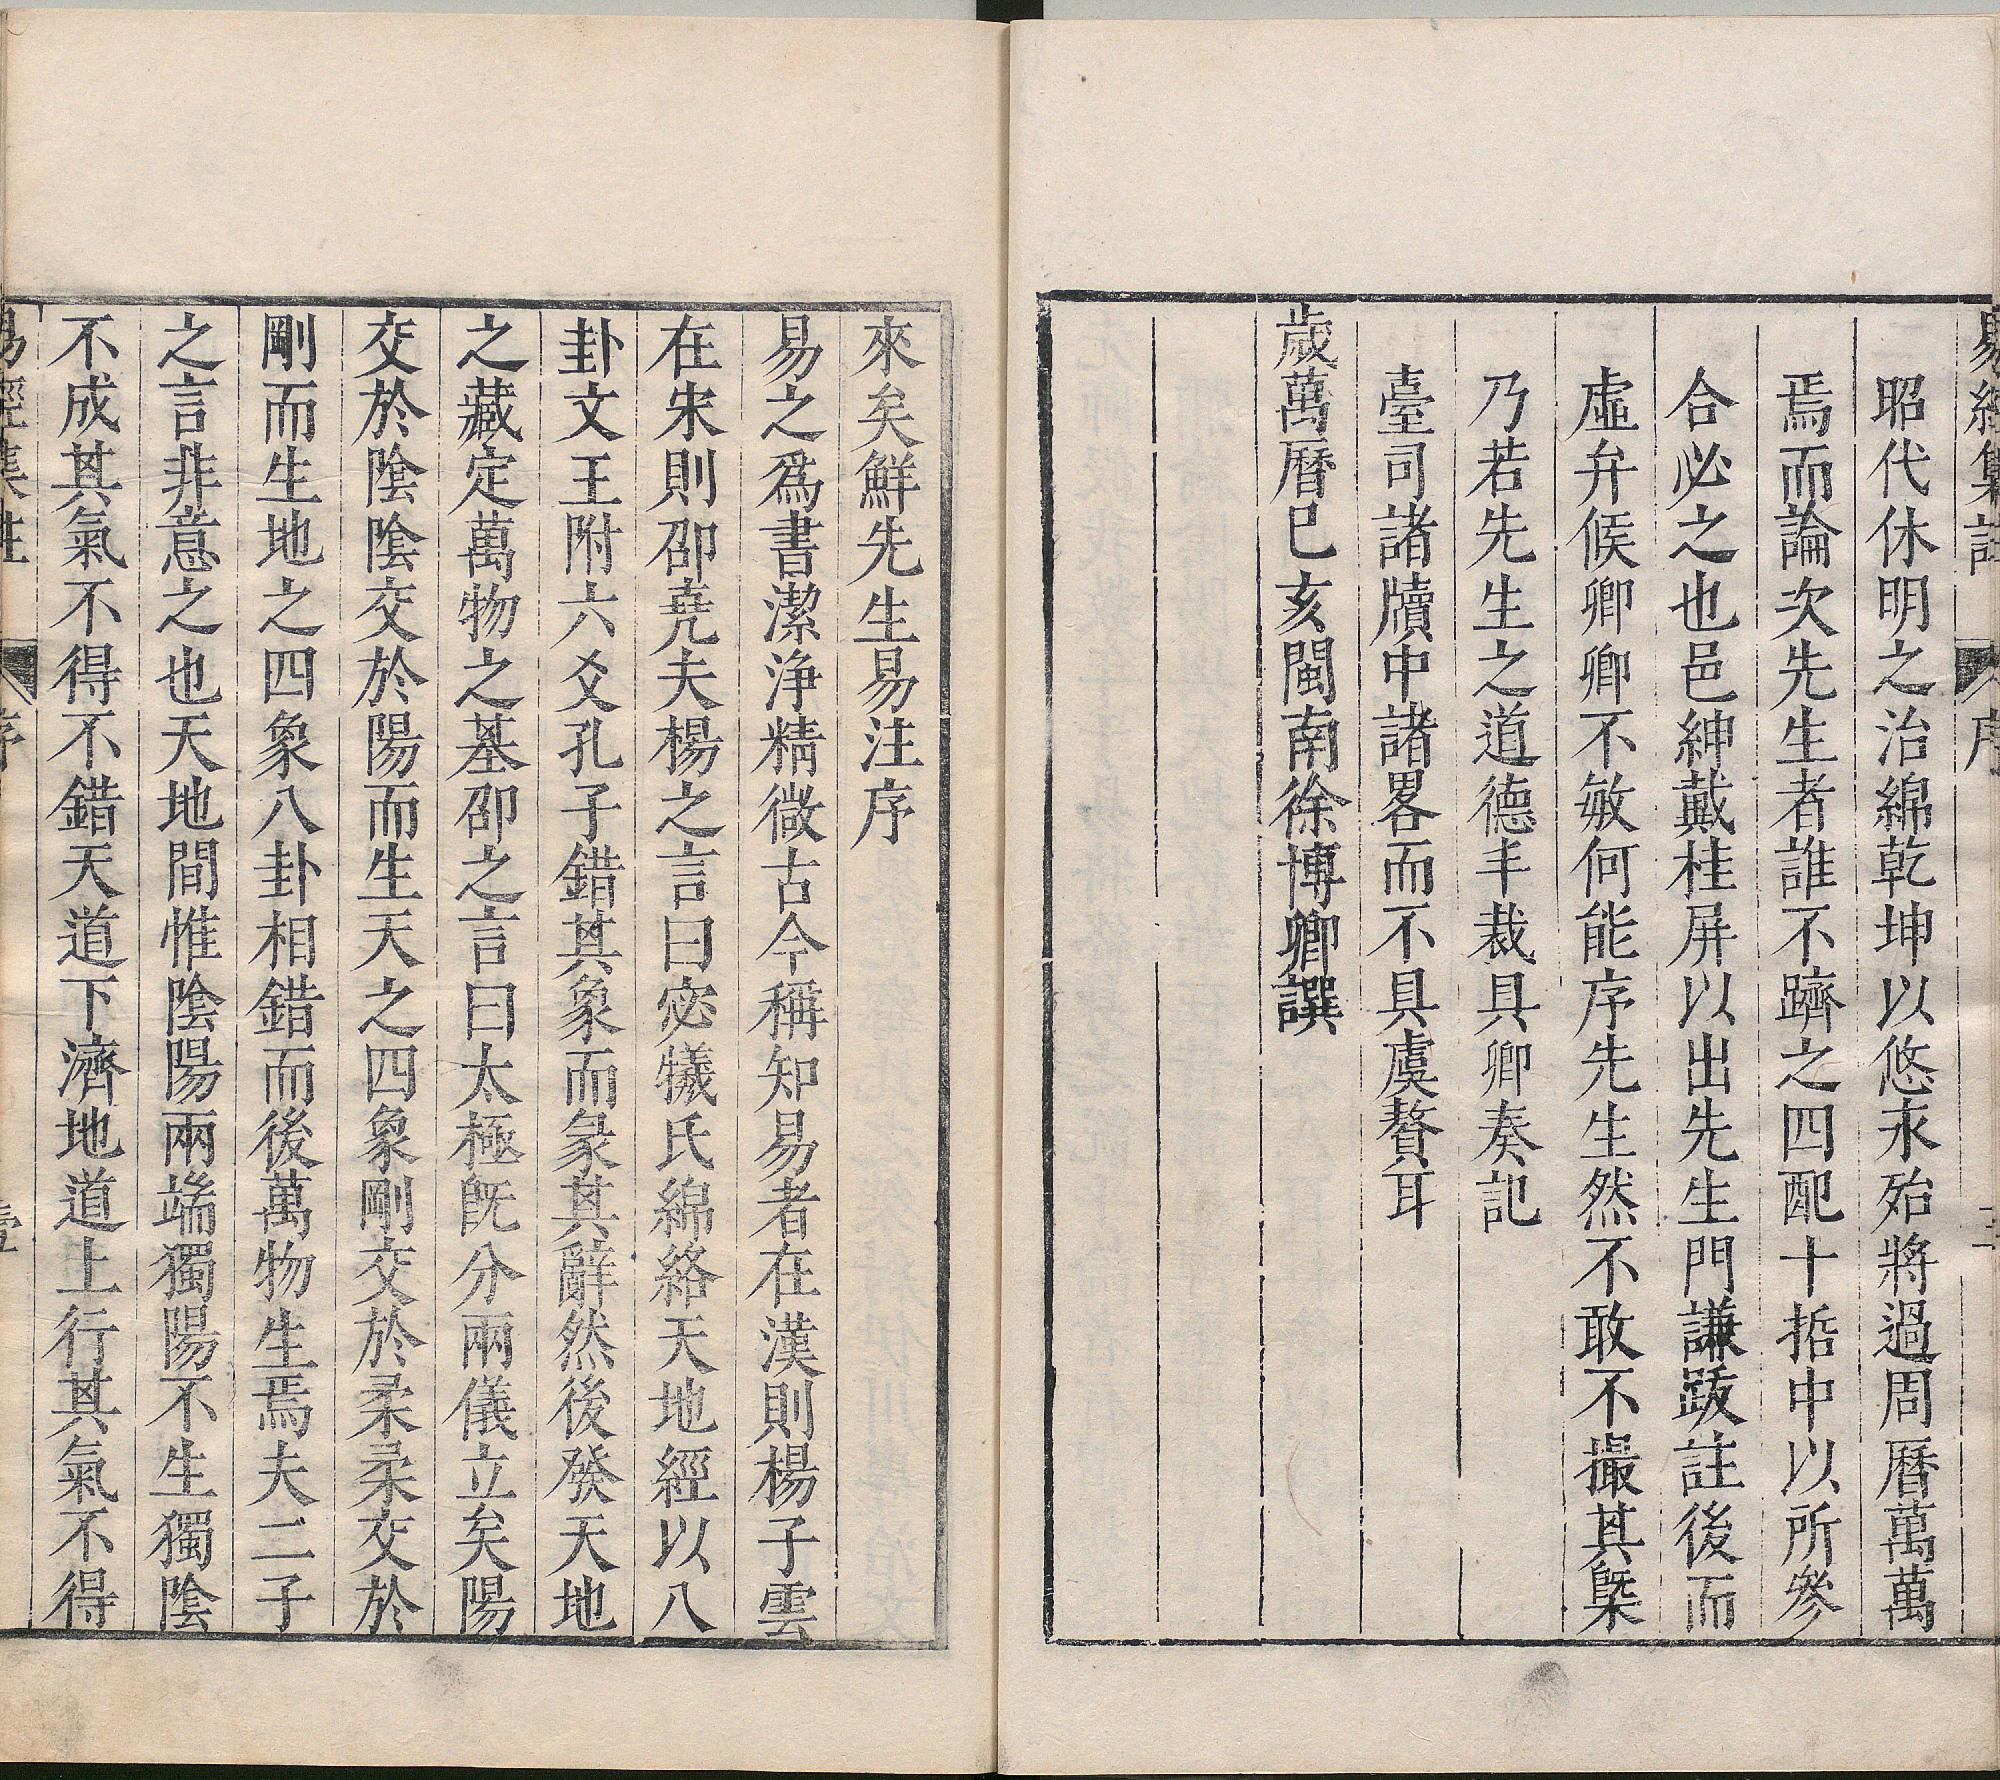 易經集註 序 二
昭代休明之治綿乾坤以悠永殆將過周曆萬萬
焉而論次先生者誰不躋之四配十哲中以所參
合必之也邑紳戴桂屏以出先生門謙跋註後而
虛弁候卿卿不敏何能序先生然不敢不撮其槩
乃若先生之道德丰裁具卿奏記
臺司諸牘中諸畧而不具虞贅耳
歲萬曆己亥閩南徐博卿譔
來矣鮮先生易注序
易之爲書潔淨精微古今稱知易者在漢則楊子雲
在宋則邵堯夫楊之言曰宓犧氏綿絡天地經以八
卦文王附六爻孔子錯其象而彖其辭然後發天地
之藏定萬物之基邵之言曰太極旣分兩儀立矣陽
交於陰陰交於陽而生天之四象剛交於柔柔交於
剛而生地之四象八卦相錯而後萬物生焉夫二子
之言非意之也天地間惟陰陽兩端獨陽不生獨陰
不成其氣不得不錯天道下濟地道上行其氣不得
易經集註 序 壹